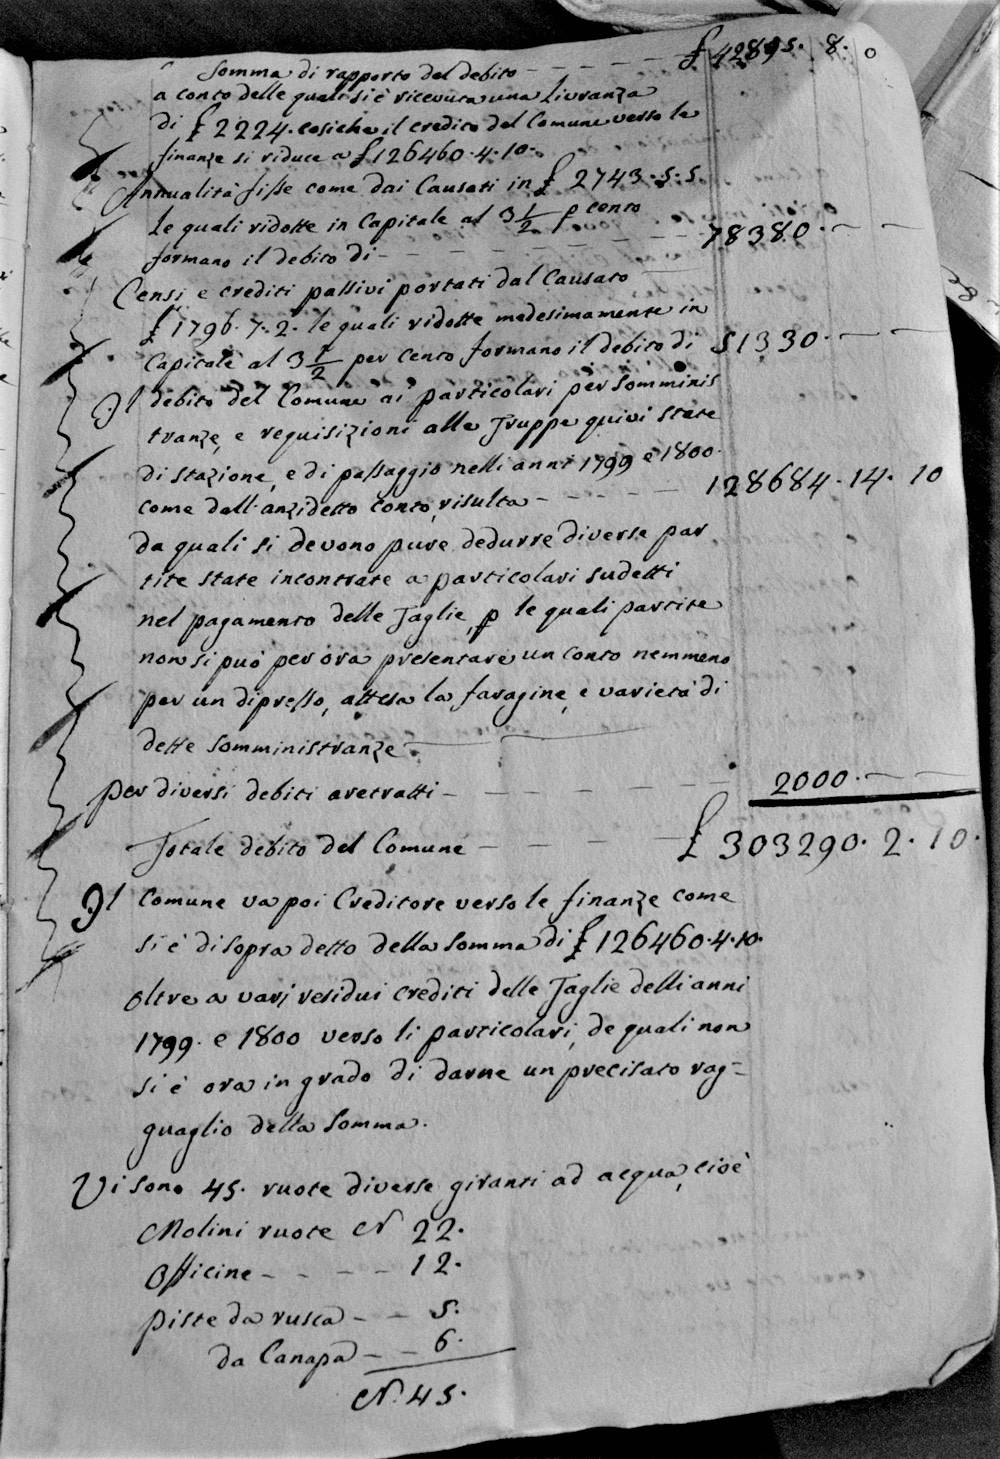 Somma di rapporto del debito - - - - - £ 42895. 8. 0
a conto delle quali si è ricevuta una Livranza
di £ 2224. cosiche il credito del Comune verso le
finanze si riduce a £ 126460. 4. 10.
Annualità fisse come dai Causati in £ 2743. 5. 5.
le quali ridotte in Capitale al 3 1/2 p cento
formano il debito di - - - - - - - - 78380. — —
Censi e crediti passivi portati dal Causato
£ 1796. 7. 2. le quali ridotte medesimamente in
Capitale al 3 1/2 per cento formano il debito di 51330. — —
Il debito del Comune ai particolari per somminis
tranze, e requisizioni alle Truppe quivi state
di stazione, e di passaggio nelli anni 1799 e 1800.
come dall'anzidetto conto, risulta - - - - - 128684. 14. 10
da quali si devono pure dedurre diverse par
tite state incontrate a particolari sudetti
nel pagamento delle Taglie, p le quali partite
non si può per ora presentare un conto nemmeno
per un dipresso, attesa la faragine, e varietà di
dette somministranze
per diversi debiti aretratti - - - - - - - 2000. — —
Totale debito del Comune - - - - £ 303290. 2. 10.
Il Comune va poi Creditore verso le finanze come
si è di sopra detto della somma di £ 126460. 4. 10.
oltre a varj residui crediti delle Taglie delli anni
1799. e 1800 verso li particolari, de quali non
si è ora in grado di darne un precisato rag-
guaglio della Somma.
Vi sono 45. ruote diverse giranti ad acqua, cioè
Molini ruote N 22.
Officine - - - - 12.
Piste da rusca - - 5.
da Canapa - - 6.
N. 45.